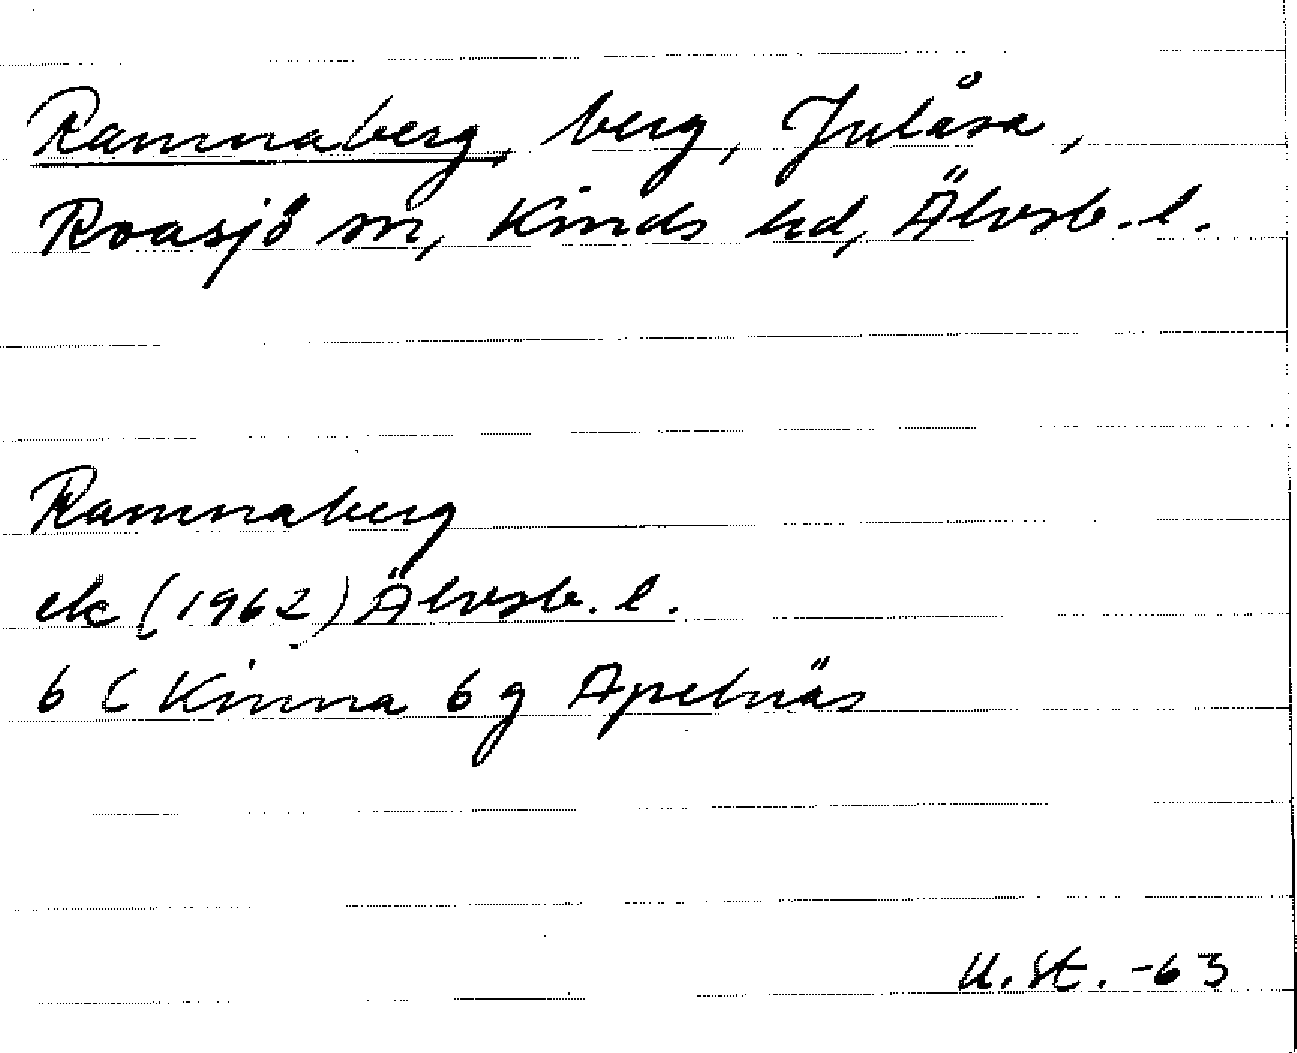 Ramnaberg, berg, Julåsa,
Roasjö sn, Kinds hd, Älvsb. l.
Ramnaberg
ek (1962) Älvsb. l.
6 C Kinna 6 g Apelnäs
U. St. -63